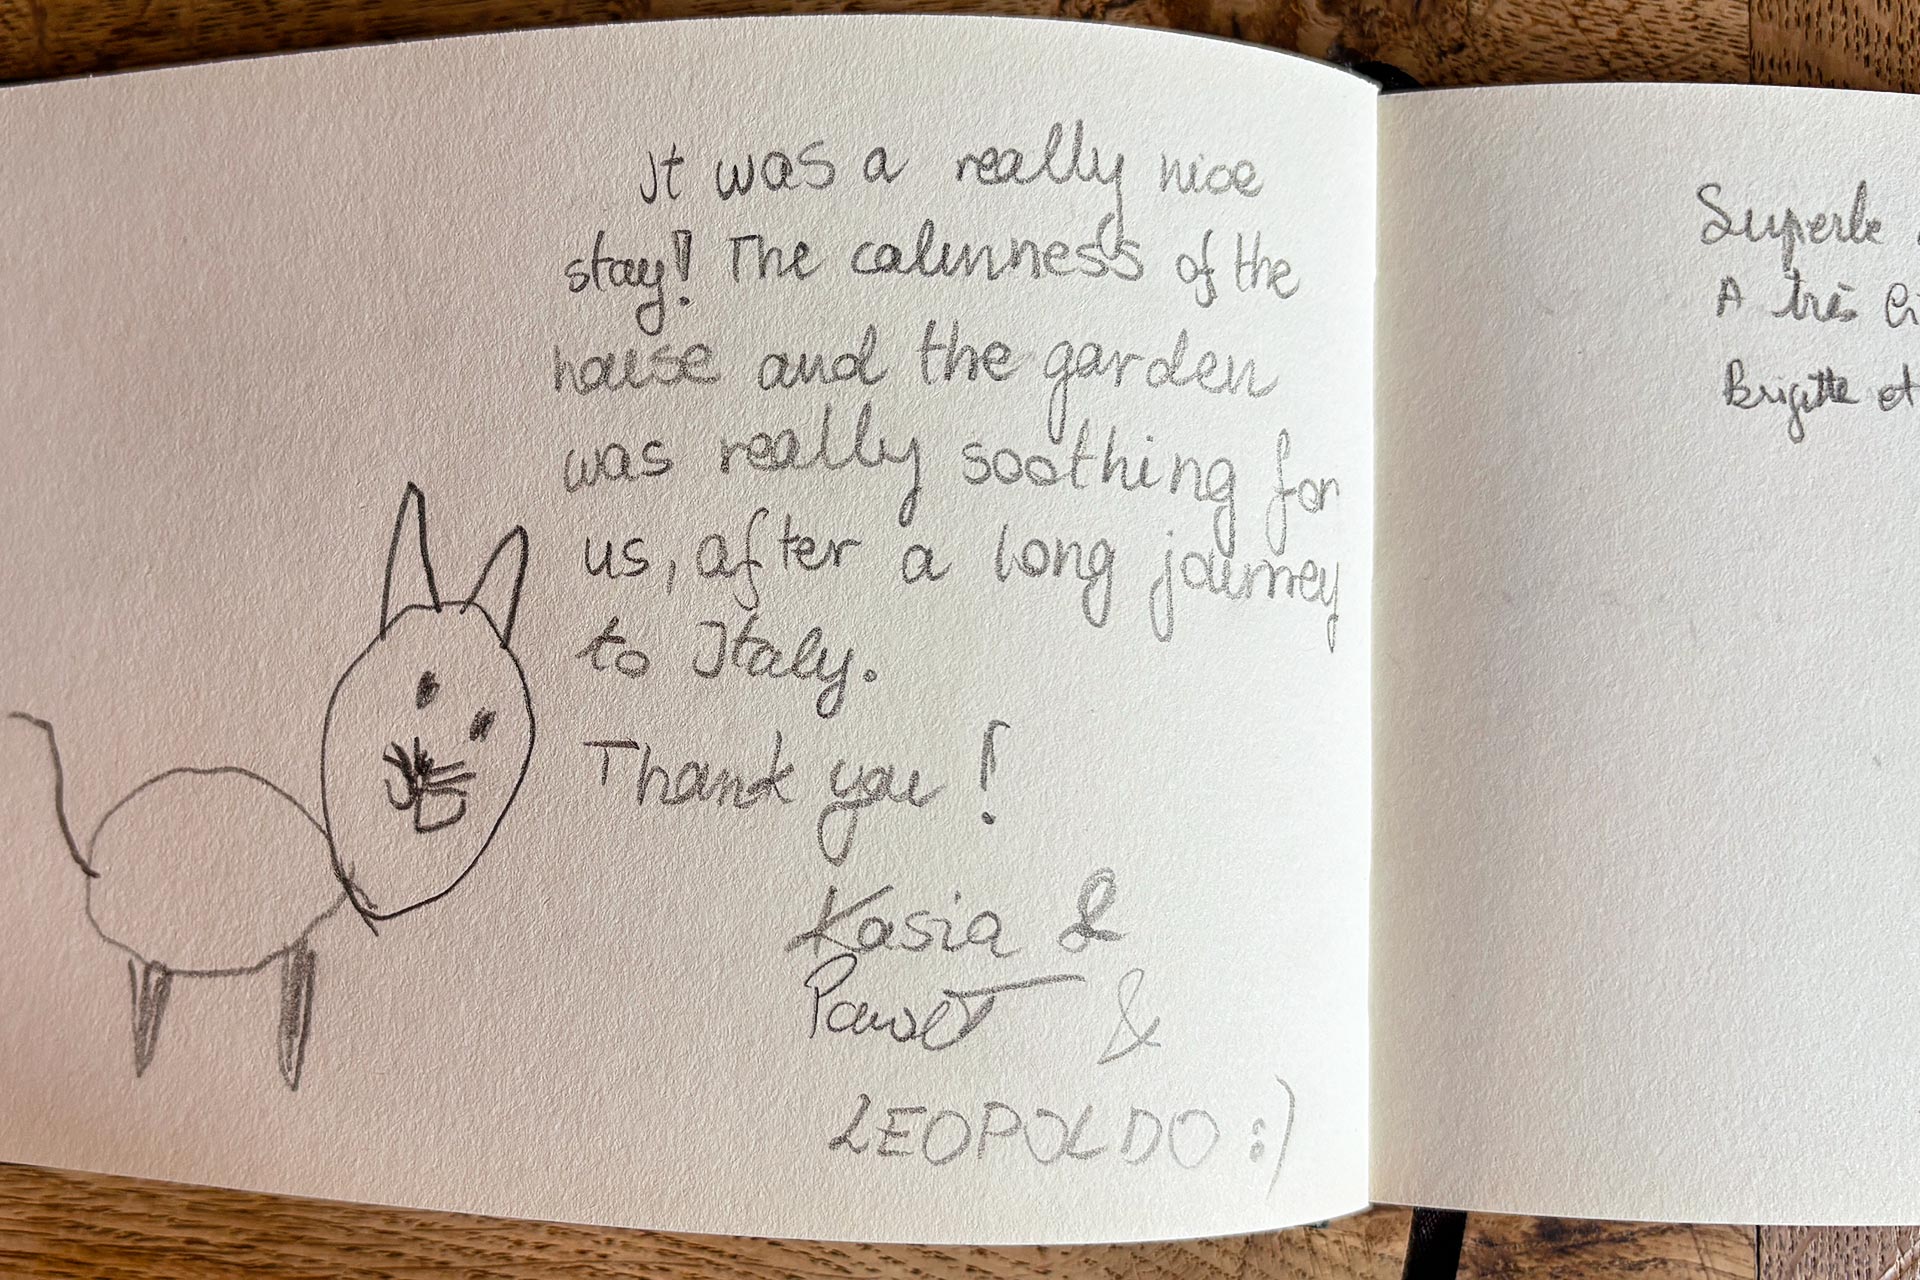 It was a really nice
stay! The calmness of the
house and the garden
was really soothing for
us, after a long journey
to Italy.
Thank you!
Kasia &
Paweł &
LEOPOLDO :)
Superbe
A très
Brigitte et